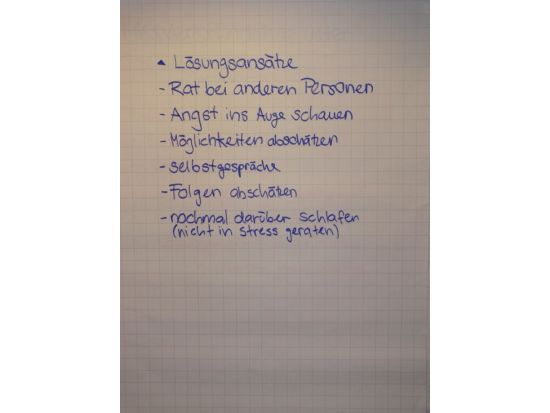 ▲ Lösungsansätze
- Rat bei anderen Personen
- Angst ins Auge schauen
- Möglichkeiten abschätzen
- selbstgespräche
- Folgen abschätzen
- nochmal darüber schlafen
(nicht in stress geraten)